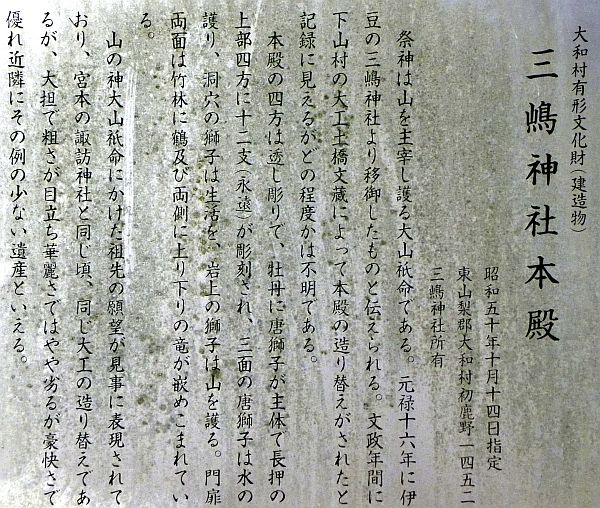 大和村有形文化財(建造物)
三嶋神社本殿
昭和五十年十月十四日指定
東山梨郡大和村初鹿野一四五二
三嶋神社所有
祭神は山を主宰し護る大山祇命である。元禄十六年に伊
豆の三嶋神社より移御したものと伝えられる。文政年間に
下山村の大工土橋文蔵によって本殿の造り替えがされたと
記録に見えるがどの程度かは不明である。
本殿の四方は透し彫りで、牡丹に唐獅子が主体で長押の
上部四方に十二支(永遠)が彫刻され、三面の唐獅子は水の
護り、洞穴の獅子は生活を、岩上の獅子は山を護る。門扉
両面は竹林に鶴及び両側に上り下りの竜が嵌めこまれてい
る。
山の神大山祇命にかけた祖先の願望が見事に表現されて
おり、宮本の諏訪神社と同じ頃、同じ大工の造り替えであ
るが、大担で粗さが目立ち華麗さではやや劣るが豪快さで
優れ近隣にその例の少ない遺産といえる。